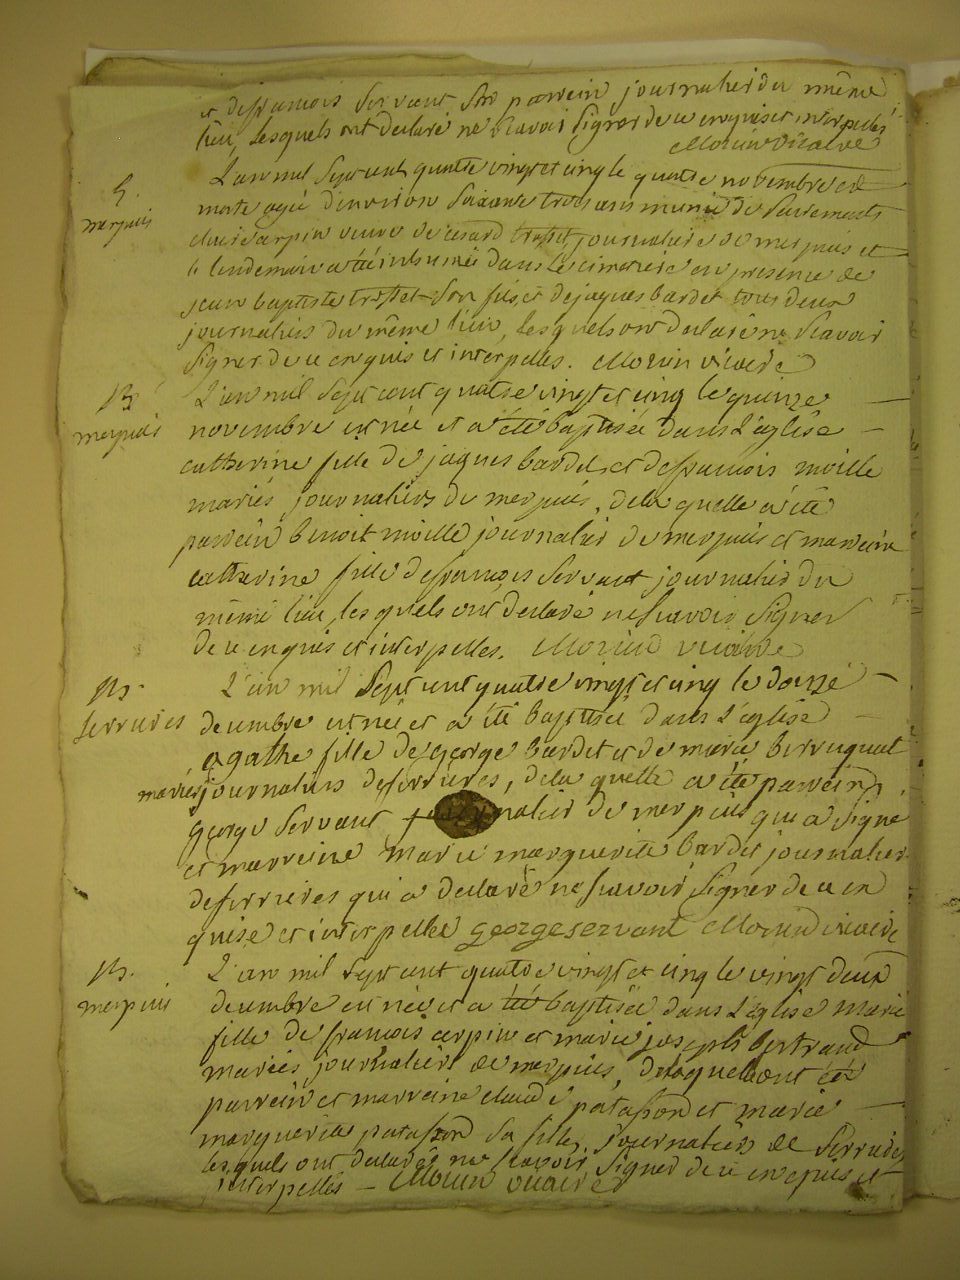 et de francois Servant Son parrein journalier du même
lieu, lesquels ont declaré ne Scavoir Signer de ce enquis et interpellés
Morin vicaire
L'an mil Sept cent quatre vingt et cinq le quatre novembre est
S.
merpuis
morte agée d'environ Soixante trois ans munie de Sacrements
claire carpin veuve de journaliere de merpuis et
le lendemain a été inhumée dans le cimetiere en presence de
jean baptiste Son fils et de jaques bardet tous deux
journaliers du même lieu, lesquels ont declaré ne Scavoir
Signer de ce enquis et interpelles. Morin vicaire
B
merpuis
L'an mil Sept cent quatre vingt et cinq le quinze
novembre est née et a été baptisée dans L'église
catherine fille de jaques bardet et de francois moille
mariés journaliers de merpuis, de la quelle a été
parrein benoit moille journalier de merpuis et marreine
catherine fille de francois Servant journalier du
même lieu, lesquels ont declaré ne Scavoir Signer
de ce enquis et interpelles. Morin vicaire
B.
ferrieres
L'an mil Sept cent quatre vingt et cinq le douze
decembre est née et a été baptisée dans L'église
agathe fille de George bardet et de marie
mariés journaliers de ferrieres, de la quelle a été parrein
George Servant journalier de merpuis qui a Signé
et marreine marie marguerite bardet journalier
de ferrieres qui a declaré ne Scavoir Signer de ce en
quise et interpellée george servant Morin vicaire
B.
merpuis
L'an mil Sept cent quatre vingt et cinq le vingt deux
decembre est née et a été baptisée dans L'église marie
fille de francois carpin et marie joseph bertrand
mariés journaliers de merpuis, de laquelle ont été
parrein et marreine claude patasson et marie
marguerite patasson Sa fille, journaliers de ferrieres
lesquels ont declarés ne Scavoir Signer de ce enquis et
interpellés – Morin vicaire